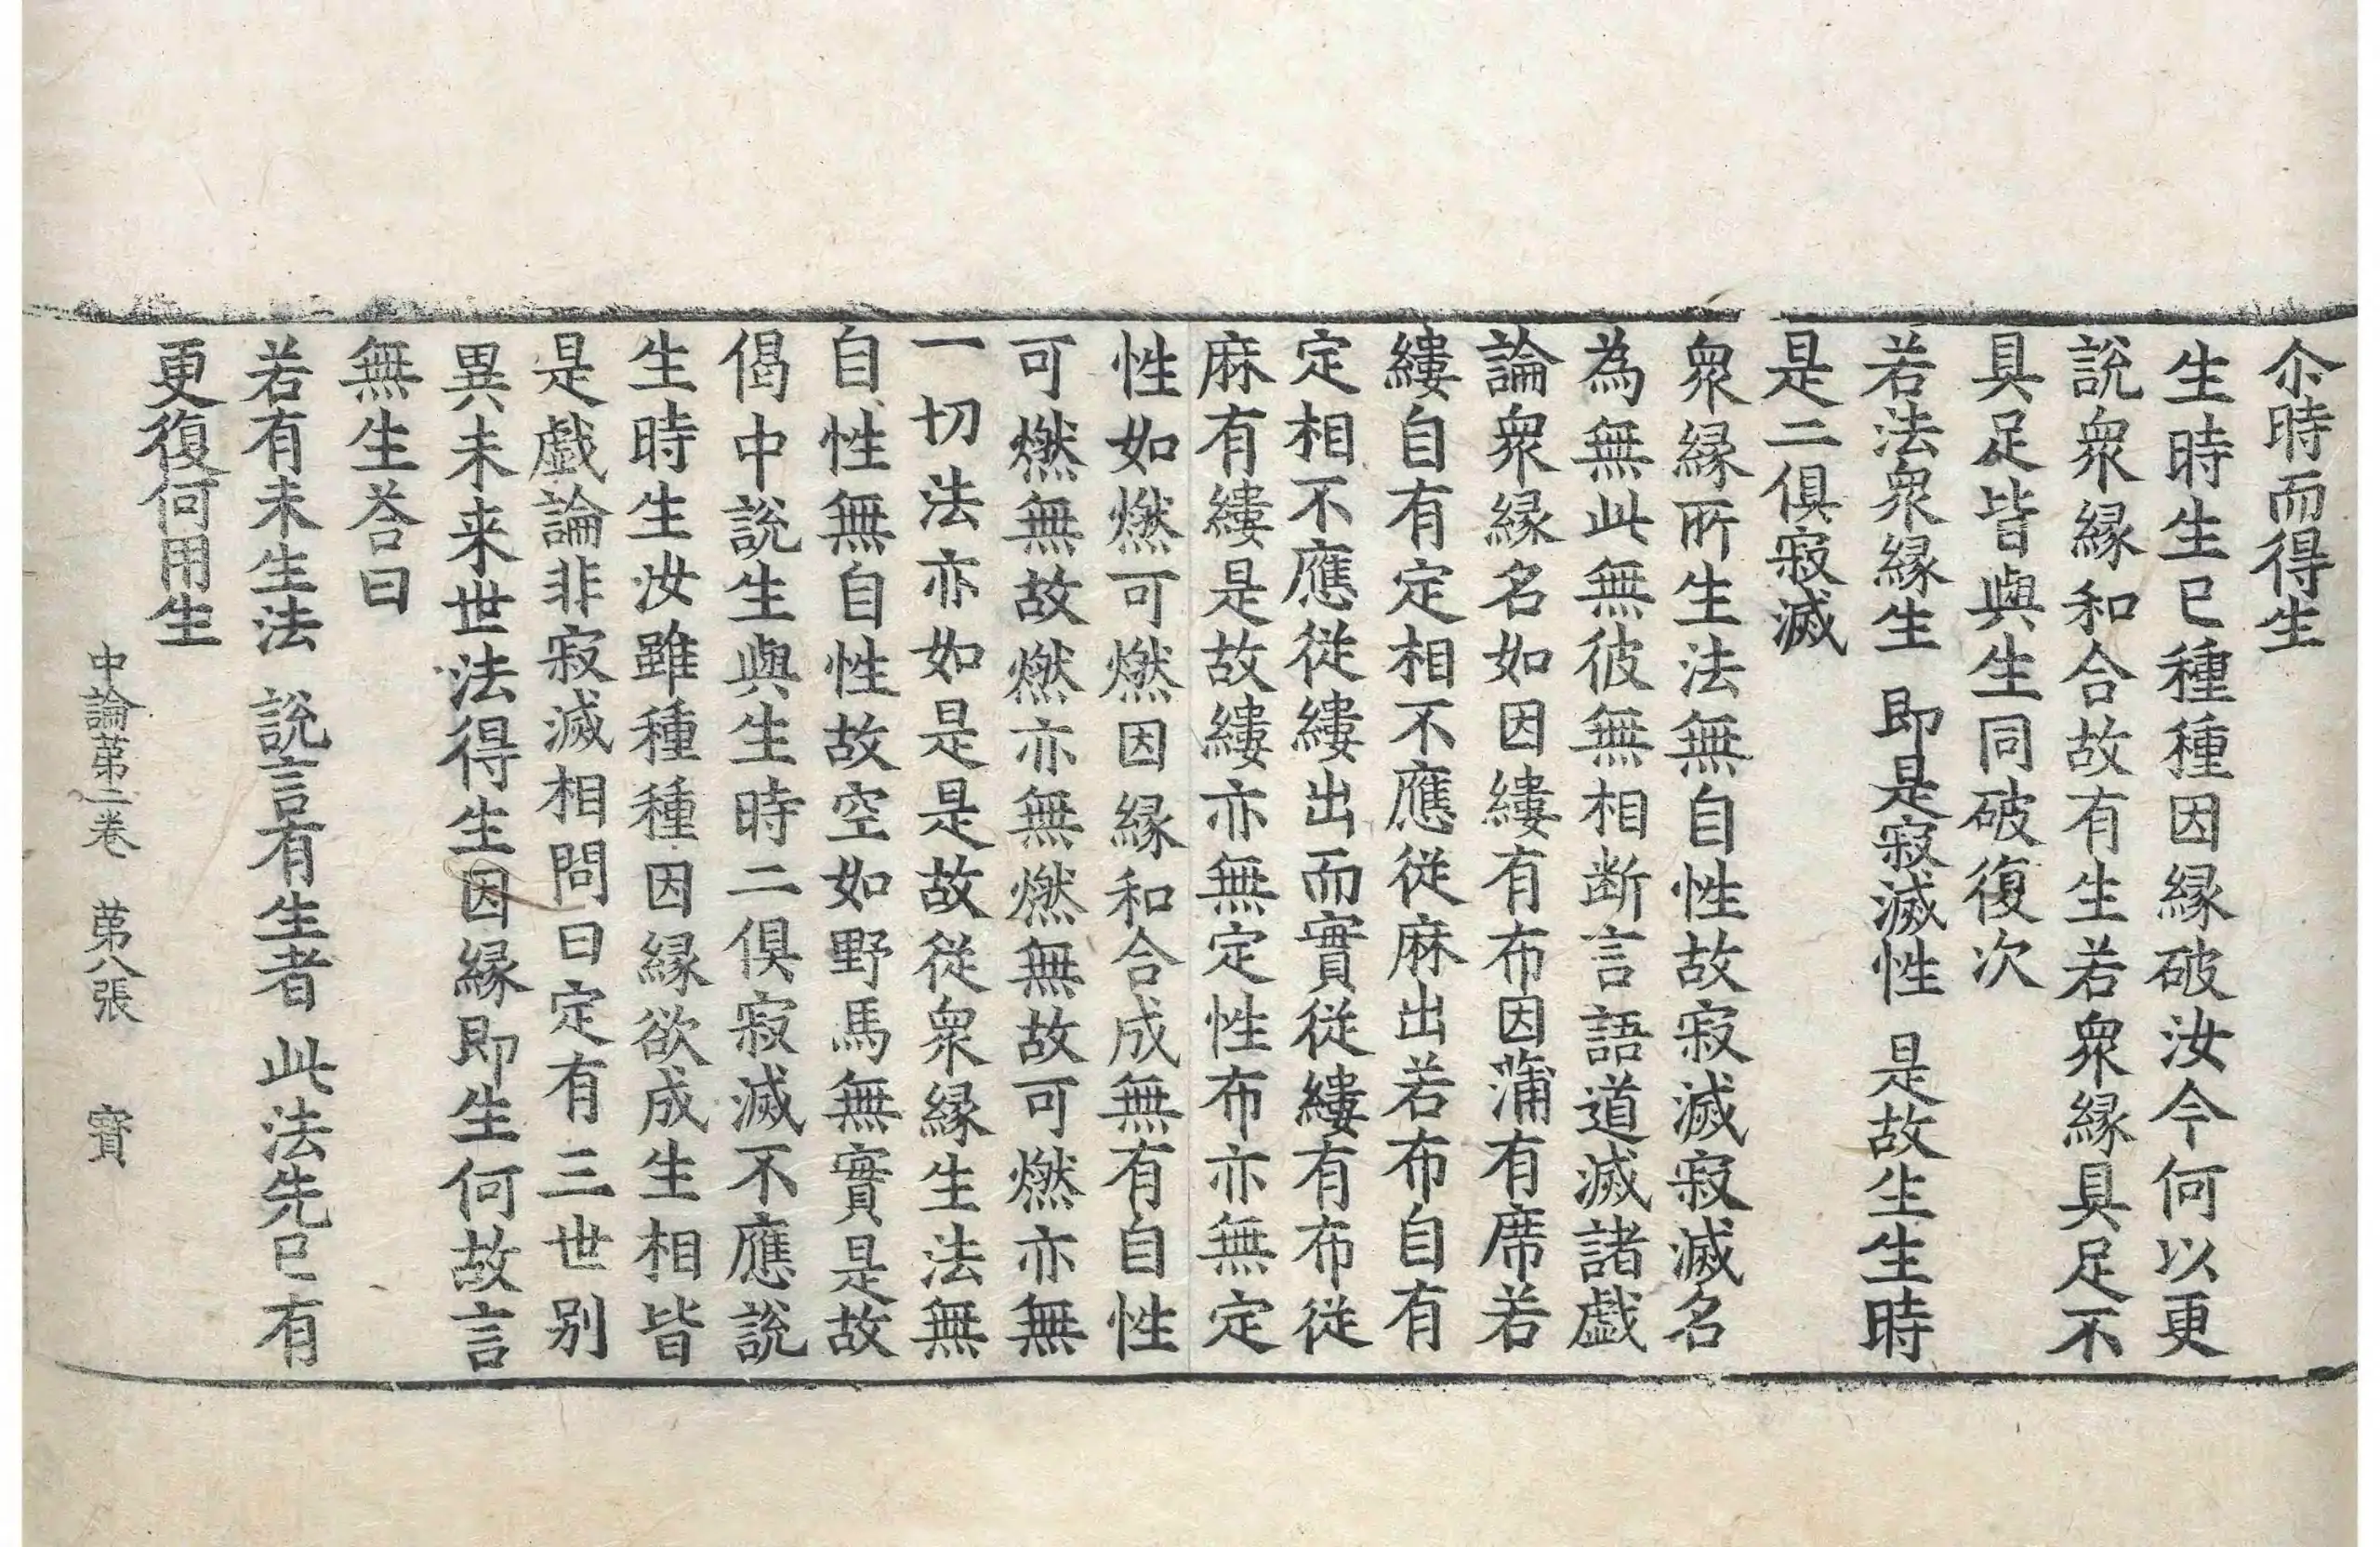 尒時而得生
生時生已種種因縁破汝今何以更
說衆縁和合故有生若衆縁具足不
具足皆與生同破復次
若法衆縁生　即是寂滅性　是故生生時
是二俱寂滅
衆縁所生法無自性故寂滅寂滅名
為無此無彼無相断言語道滅諸戯
論衆縁名如因縷有布因蒲有席若
縷自有定相不應従麻出若布自有
定相不應従縷出而實従縷有布従
麻有縷是故縷亦無定性布亦無定
性如燃可燃因縁和合成無有自性
可燃無故燃亦無燃無故可燃亦無
一切法亦如是是故従衆縁生法無
自性無自性故空如野馬無實是故
偈中說生與生時二俱寂滅不應說
生時生汝雖種種因縁欲成生相皆
是戯論非寂滅相問曰定有三世別
異未来世法得生因縁即生何故言
無生荅曰
若有未生法　說言有生者　此法先已有
更復何用生
中論苐二卷　苐八張　寳